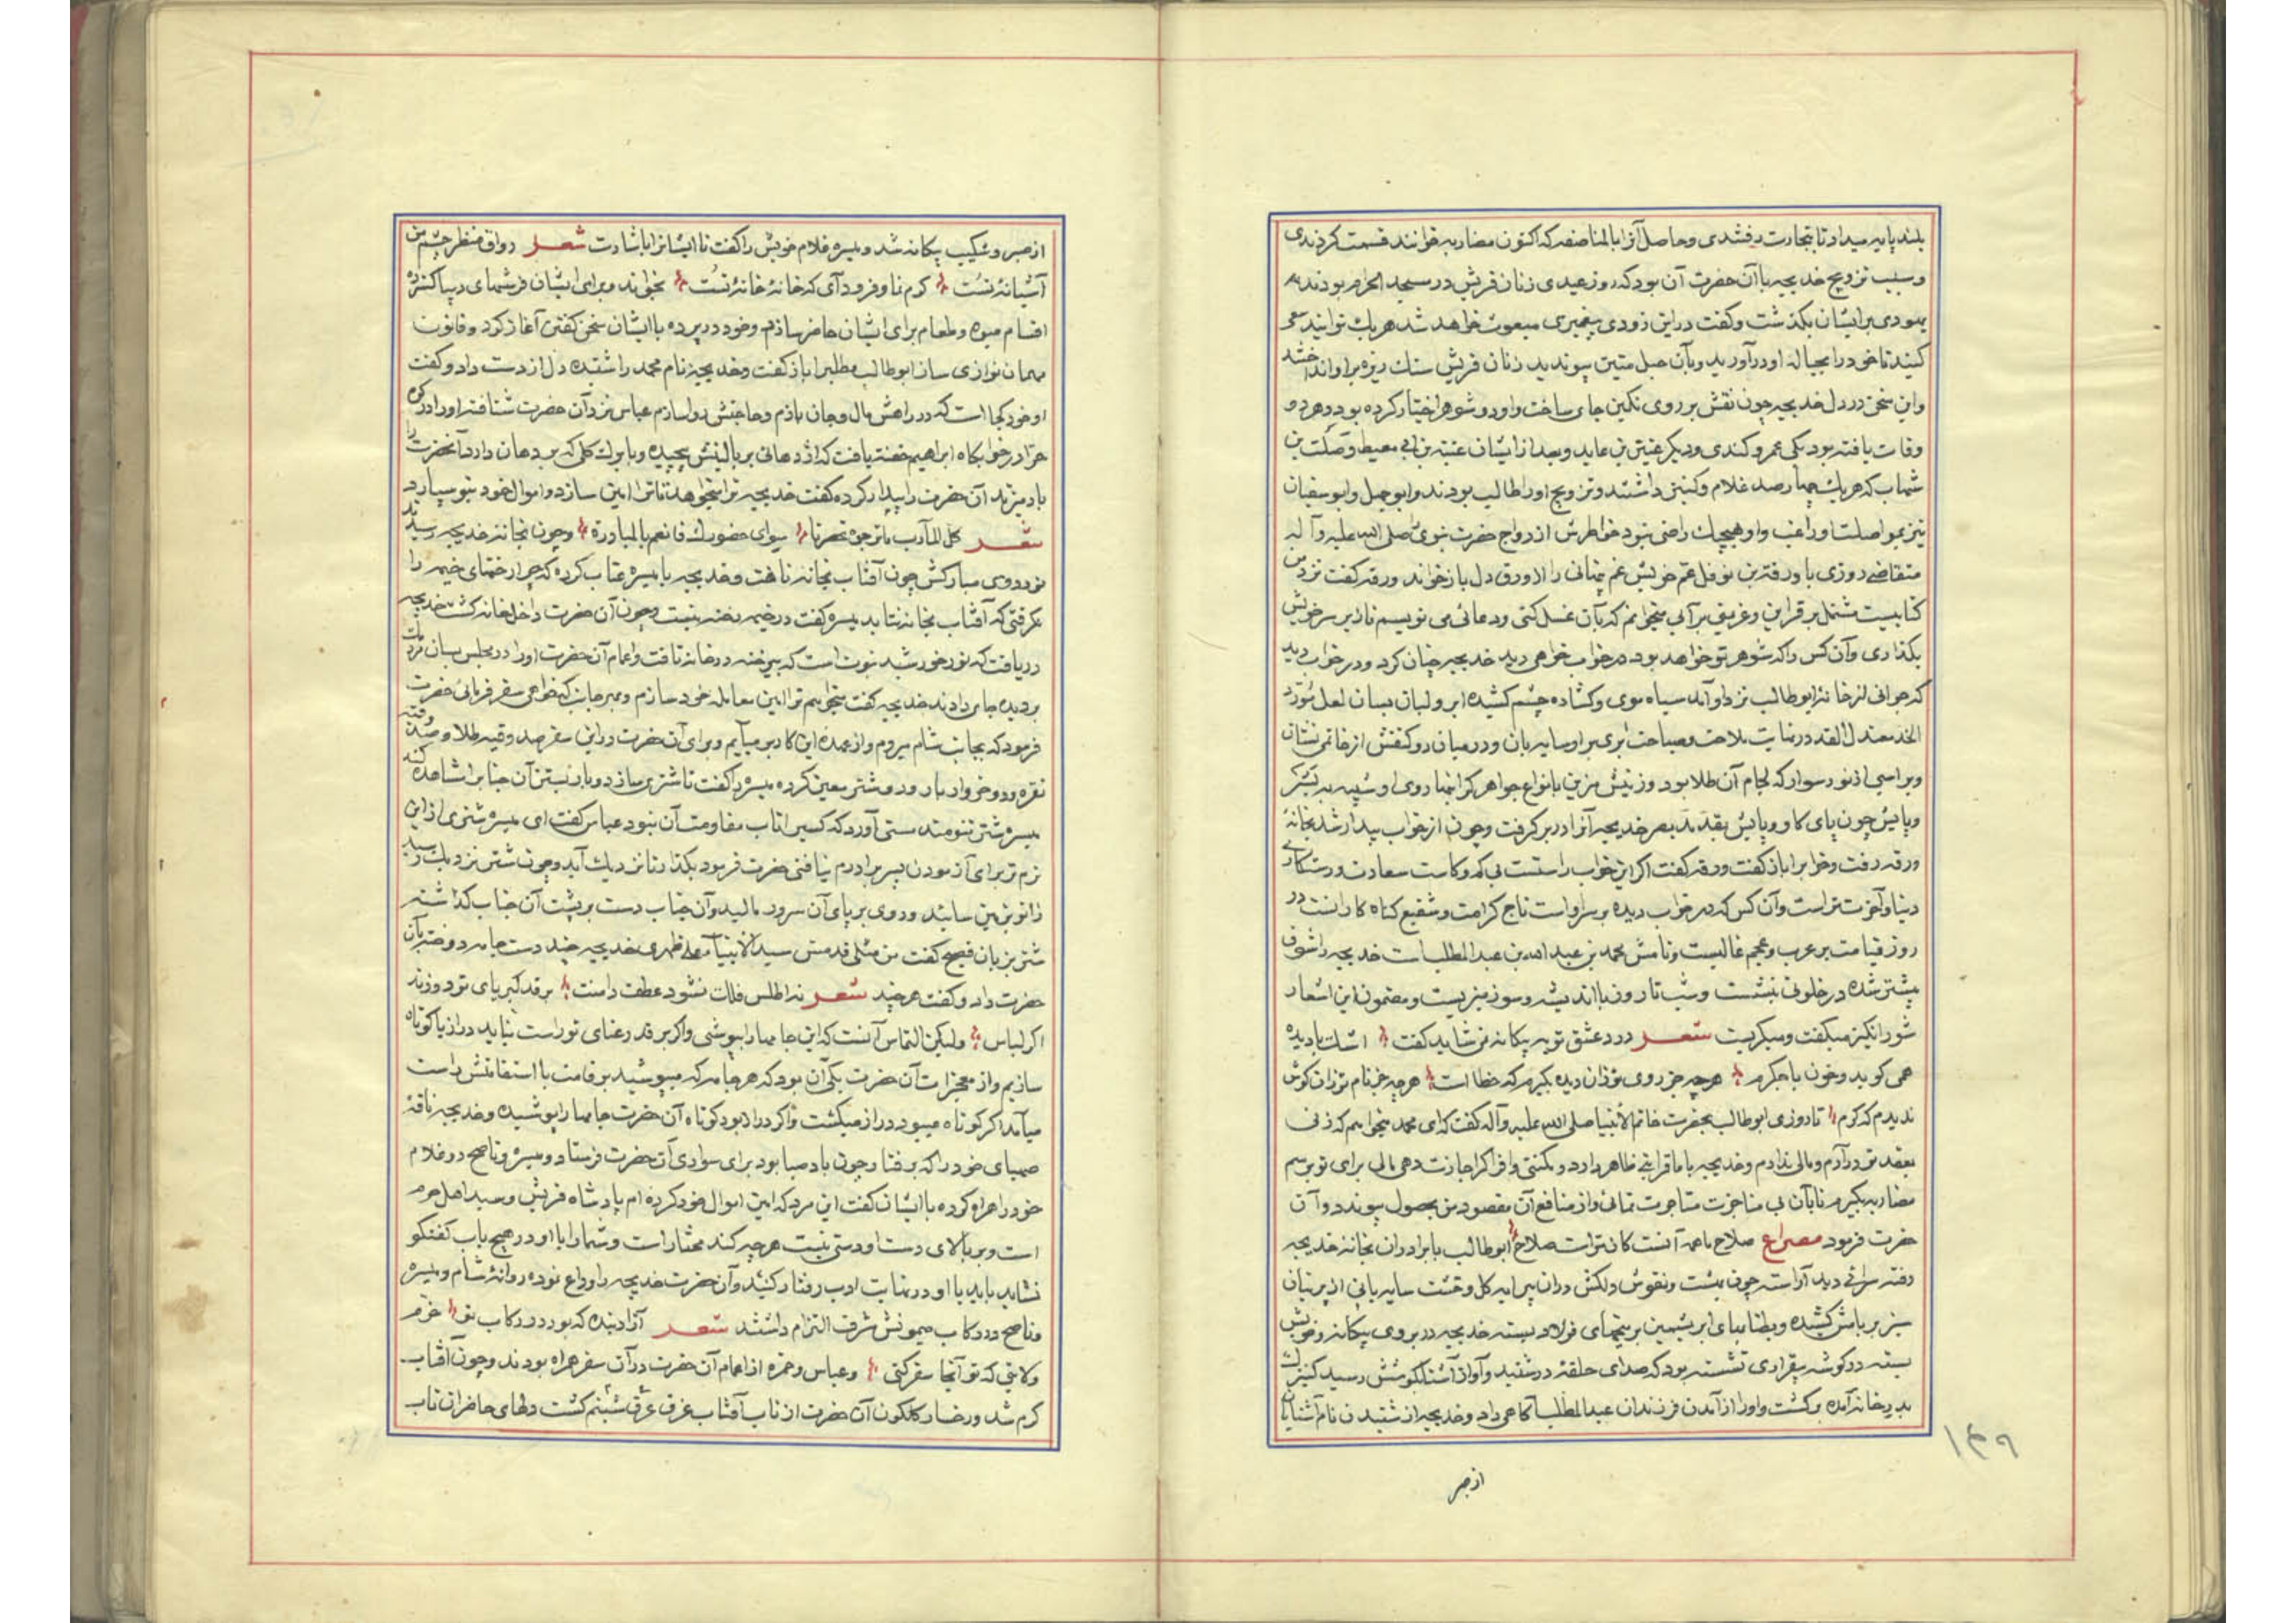 بلند پایه میداد تا بتجارت رفتندی و حاصل آنرا بالمناصفه که اکنون مضاربه خوانند قسمت کردندی
و سبب تزویج خدیجه با آن حضرت آن بود که روز عیدی زنان قریش در مسجد الحرام بودند که
یهودی بر ایشان بگذشت و گفت در این زودی پیغمبری مبعوث خواهد شد هر یک توانید سعی
کنید تا خود را بحباله او درآورید و بآن حبل متین پیوندید زنان قریش سنک ریزه بر او انداختند
و این سخن در دل خدیجه چون نقش بر روی نکین جای ساخت و او دو شوهر اختیار کرده بود و هر دو
وفات یافته بود یکی عمرو کندی و دیگر عتیق بن عاید و بعد از ایشان عتبه بن ابی معیط و صلت بن
شهاب که هر یک چهار صد غلام و کنیز داشتند و تزویج او را طالب بودند و ابو جهل و ابو سفیان
نیز بمواصلت او راغب و او بهیچیک راضی نبود خواطرش ازدواج حضرت نبوی صلی الله علیه و آله
متقاضی روزی با ورقة بن نوفل عم خویش غم پنهانی را از ورق دل باز خواند ورقه گفت نزد من
کتابیست مشتمل بر قراین و غریق بر آبی میخوانم که بآن غسل کنی و دعائی می نویسم تا زیر سر خویش
بگذاری و آن کس را که شوهر تو خواهد بود در خواب خواهی دید خدیجه چنان کرد و در خواب دید
که جوانی از خانه ابو طالب نزد او آمد سیاه موی و کشاده چشم کشیده ابرو لبان بسان لعل مورد
الخد معتدل القد در نهایت ملاحت و صباحت ابری بر او سایه بان و در میان دو کتفش از خاتمی نشان
و بر اسبی از نور سوار که لجام آن طلا بود و زینش مزین بانواع جواهر کرانبها روی او شبیه به بشر
و پایش چون پای کاو و پایش بقدر مد بصر خدیجه آنرا در بر کرفت و چون از خواب بیدار شد بخانه
ورقه رفت و خواب را باز گفت ورقه گفت اگر این خواب راستست بی کم و کاست سعادت و رستکاری
دنیا و آخرت تراست و آن کس که در خواب دیده بر سر او است تاج کرامت و شفیع کناه کارانست در
روز قیامت بر عرب و عجم غالبست و نامش محمد بن عبد الله بن عبد المطلب است خدیجه را شوق
بیشتر شده در خلوتی بنشست و شب تا روز با اندیشه و سوز میزیست و مضمون این اشعار
شور انگیز میگفت و میگریست شعر درد عشق تو به بیکانه نمی شاید گفت اشک با دیده
همی گوید و خون با جگرم هر چه جز روی تو زان دیده بگیرم که خطا است هر چه جز نام تو زان گوش
ندیدم که کرم تا روزی ابو طالب بحضرت خاتم الانبیا صلی الله علیه و آله گفت که ای محمد میخواهم که زنی
بعقد تو درآرم و مالی ندارم و خدیجه با ما قرابتی ظاهر دارد و مکنتی وافر اگر اجازت دهی مالی برای تو برسم
مضاربه بگیرم تا بآن بی مناجزت متاجرت نمائی و از منافع آن مقصود من بحصول پیوندد و آن
حضرت فرمود مصراع صلاح ما همه آنست کان تراست صلاح ابو طالب با برادران بخانه خدیجه
رفته سرائی دید آراسته چون بهشت و نقوش دلکش در آن پیرایه کل و خشت سایه بانی از پرنیان
سبز بر بامش کشیده و بطنابهای ابریشمین بر میخهای فولاد بسته خدیجه در بروی بیکانه و خویش
بسته در گوشه بیقراری نشسته بود که صدای حلقه در شنید و آواز آشنا بگوشش رسید کنیزک
بدر خانه آمده برگشت و او را از آمدن فرزندان عبد المطلب آگاهی داد و خدیجه از شنیدن نام آشنایان
۱۴۹
از صبر
از صبر و شکیب بیکانه شد و میسره غلام خویش را گفت تا ایشانرا با شارت شعر رواق منظر چشم من
آشیانهٔ تست کرم نما و فرود آی که خانه خانهٔ تست بخواند و برای ایشان فرشهای دیبا گسترد
اقسام میوه و طعام برای ایشان حاضر سازم و خود در پرده با ایشان سخن گفتن آغاز کرد و قانون
مهمان نوازی ساز ابو طالب مطلب را باز گفت و خدیجه نام محمد را شنیده دل از دست داد و گفت
او خود کجا است که در راهش مال و جان بازم و حاجتش روا سازم عباس نزد آن حضرت شتافته او را در کوه
حرا در خوابگاه ابراهیم خفته یافت که اژدهائی بر بالینش پیچیده و با برک کلی که بر دهان دارد آنحضرت را
باد میزند آن حضرت را بیدار کرده گفت خدیجه ترا میخواهد تا ترا امین سازد و اموال خود بتو سپارد
شعر کل المآرب ما ترجوه تحضرنا سوای حضورک فانعم بالمبادرة و چون بخانه خدیجه رسیدند
نور روی مبارکش چون آفتاب بخانه تافت و خدیجه با میسره عتاب کرده که چرا رختهای خیمه را
نگرفتی که آفتاب بخانه نتابد میسره گفت در خیمه رخنه نیست و چون آن حضرت داخل خانه کشت خدیجه
دریافت که نور خورشید نبوت است که بی رخنه در خانه تافت و اعمام آن حضرت او را در مجلس بسان مردمک
بر دیده جای دادند خدیجه گفت میخواهم ترا امین معامله خود سازم و بهر جانب که خواهی سفر فرمائی حضرت
فرمود که بجانب شام میروم و از عهده این کار بر میآیم و برای آن حضرت در این سفر صد وقیه طلا و صد وقیه
نقره و دو خروار بار و دو شتر معین کرده میسره را گفت تا شتری سازد و بار بستن آن جناب را مشاهده کند
میسره شتر تنومند مستی آورد که کسی را تاب مقاومت آن نبود عباس گفت ای میسره شتری از این
نرم تر برای آزمودن پسر برادرم نیافتی حضرت فرمود بگذار تا نزدیک آید و چون شتر نزدیک رسید
زانو بزمین سایند و روی بر پای آن سرور مالید و آن جناب دست بر پشت آن جناب گذاشته
شتر بزبان فصیح گفت من مثلی قد مس سید الانبیاء علی ظهری خدیجه چند دست جامه دوخته بآن
حضرت داد و گفت هر چند شعر نه اطلس فلک نشود عطف دامنت بر قد کبریای تو دوزند
اگر لباس ولیکن التماس آنست که این جامها را بپوشی و اگر بر قد رعنای تو راست نیاید دراز یا کوتاه
سازیم و از معجزات آن حضرت یکی آن بود که هر جامه که میپوشید بر قامت با استقامتش راست
میآمد اگر کوتاه میبود دراز میکشت و اگر دراز بود کوتاه آن حضرت جامها را پوشیده و خدیجه ناقهٔ
صهبای خود را که برفتار چون باد صبا بود برای سواری آن حضرت فرستاد و میسره و ناصح دو غلام
خود را همراه کرده با ایشان گفت این مرد که امین اموال خود کرده ام پادشاه قریش و سید اهل حرم
است و بر بالای دست او دستی نیست هر چه کند مختار است و شما را با او در هیچ باب گفتگو
نشاید باید با او در نهایت ادب رفتار کنید و آن حضرت خدیجه را وداع نموده روانهٔ شام و میسره
و ناصح در رکاب میمونش شرف التزام داشتند شعر آزاد بنده که بود در رکاب تو خرم
ولایتی که تو آنجا سفر کنی و عباس و حمزه از اعمام آن حضرت در آن سفر همراه بودند و چون آفتاب
گرم شد و رخسار گلگون آن حضرت از تاب آفتاب غرق عرق شبنم گشت دلهای حاضران تاب